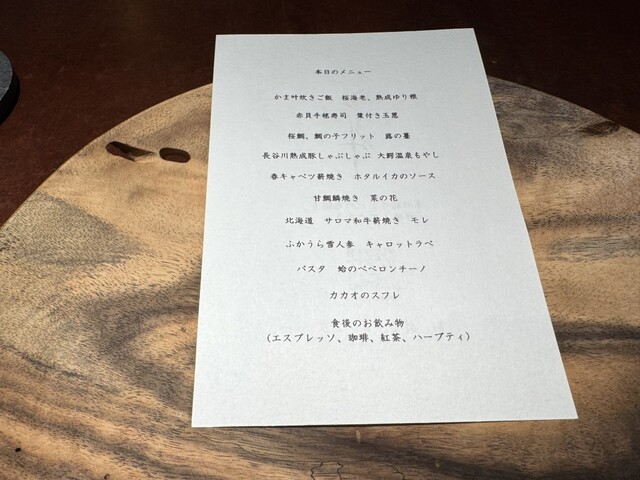 本日のメニュー
かま叶炊きご飯 桜海老、熟成ゆり根
赤貝手毬寿司 葉付き玉葱
桜鯛、鯛の子フリット 蕗の薹
長谷川熟成豚しゃぶしゃぶ 大鰐温泉もやし
春キャベツ薪焼き ホタルイカのソース
甘鯛鱗焼き 菜の花
北海道 サロマ和牛薪焼き モレ
ふかうら雪人参 キャロットラペ
パスタ 蛤のペペロンチーノ
カカオのスフレ
食後のお飲み物
(エスプレッソ、珈琲、紅茶、ハーブティ)